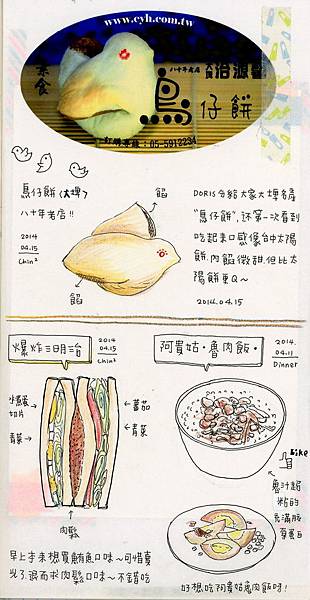 www.cyh.com.tw
素食
八十年老店
治源
鳥仔餅
訂購專線：05-5912234
鳥仔餅(大埤)
八十年老店!!
2014
04.15
Chin²
餡
餡
DORIS介紹大家大埤名產
"鳥仔餅"，還第一次看到
吃起來口感像台中太陽
餅，內餡微甜，但比太
陽餅更Q～
2014.04.15
爆炸三明治
2014
04.15
Chin²
水煮蛋
切片
青菜
番茄
青菜
肉鬆
早上本來想買鮪魚口味～可惜賣
光了，退而求肉鬆口味～不錯吃
阿貴姑·魯肉飯·
2014.
04.11
Dinner
like
魯汁超
粘的
充滿膠
原蛋白
好想吃阿貴姑魯肉飯呀!